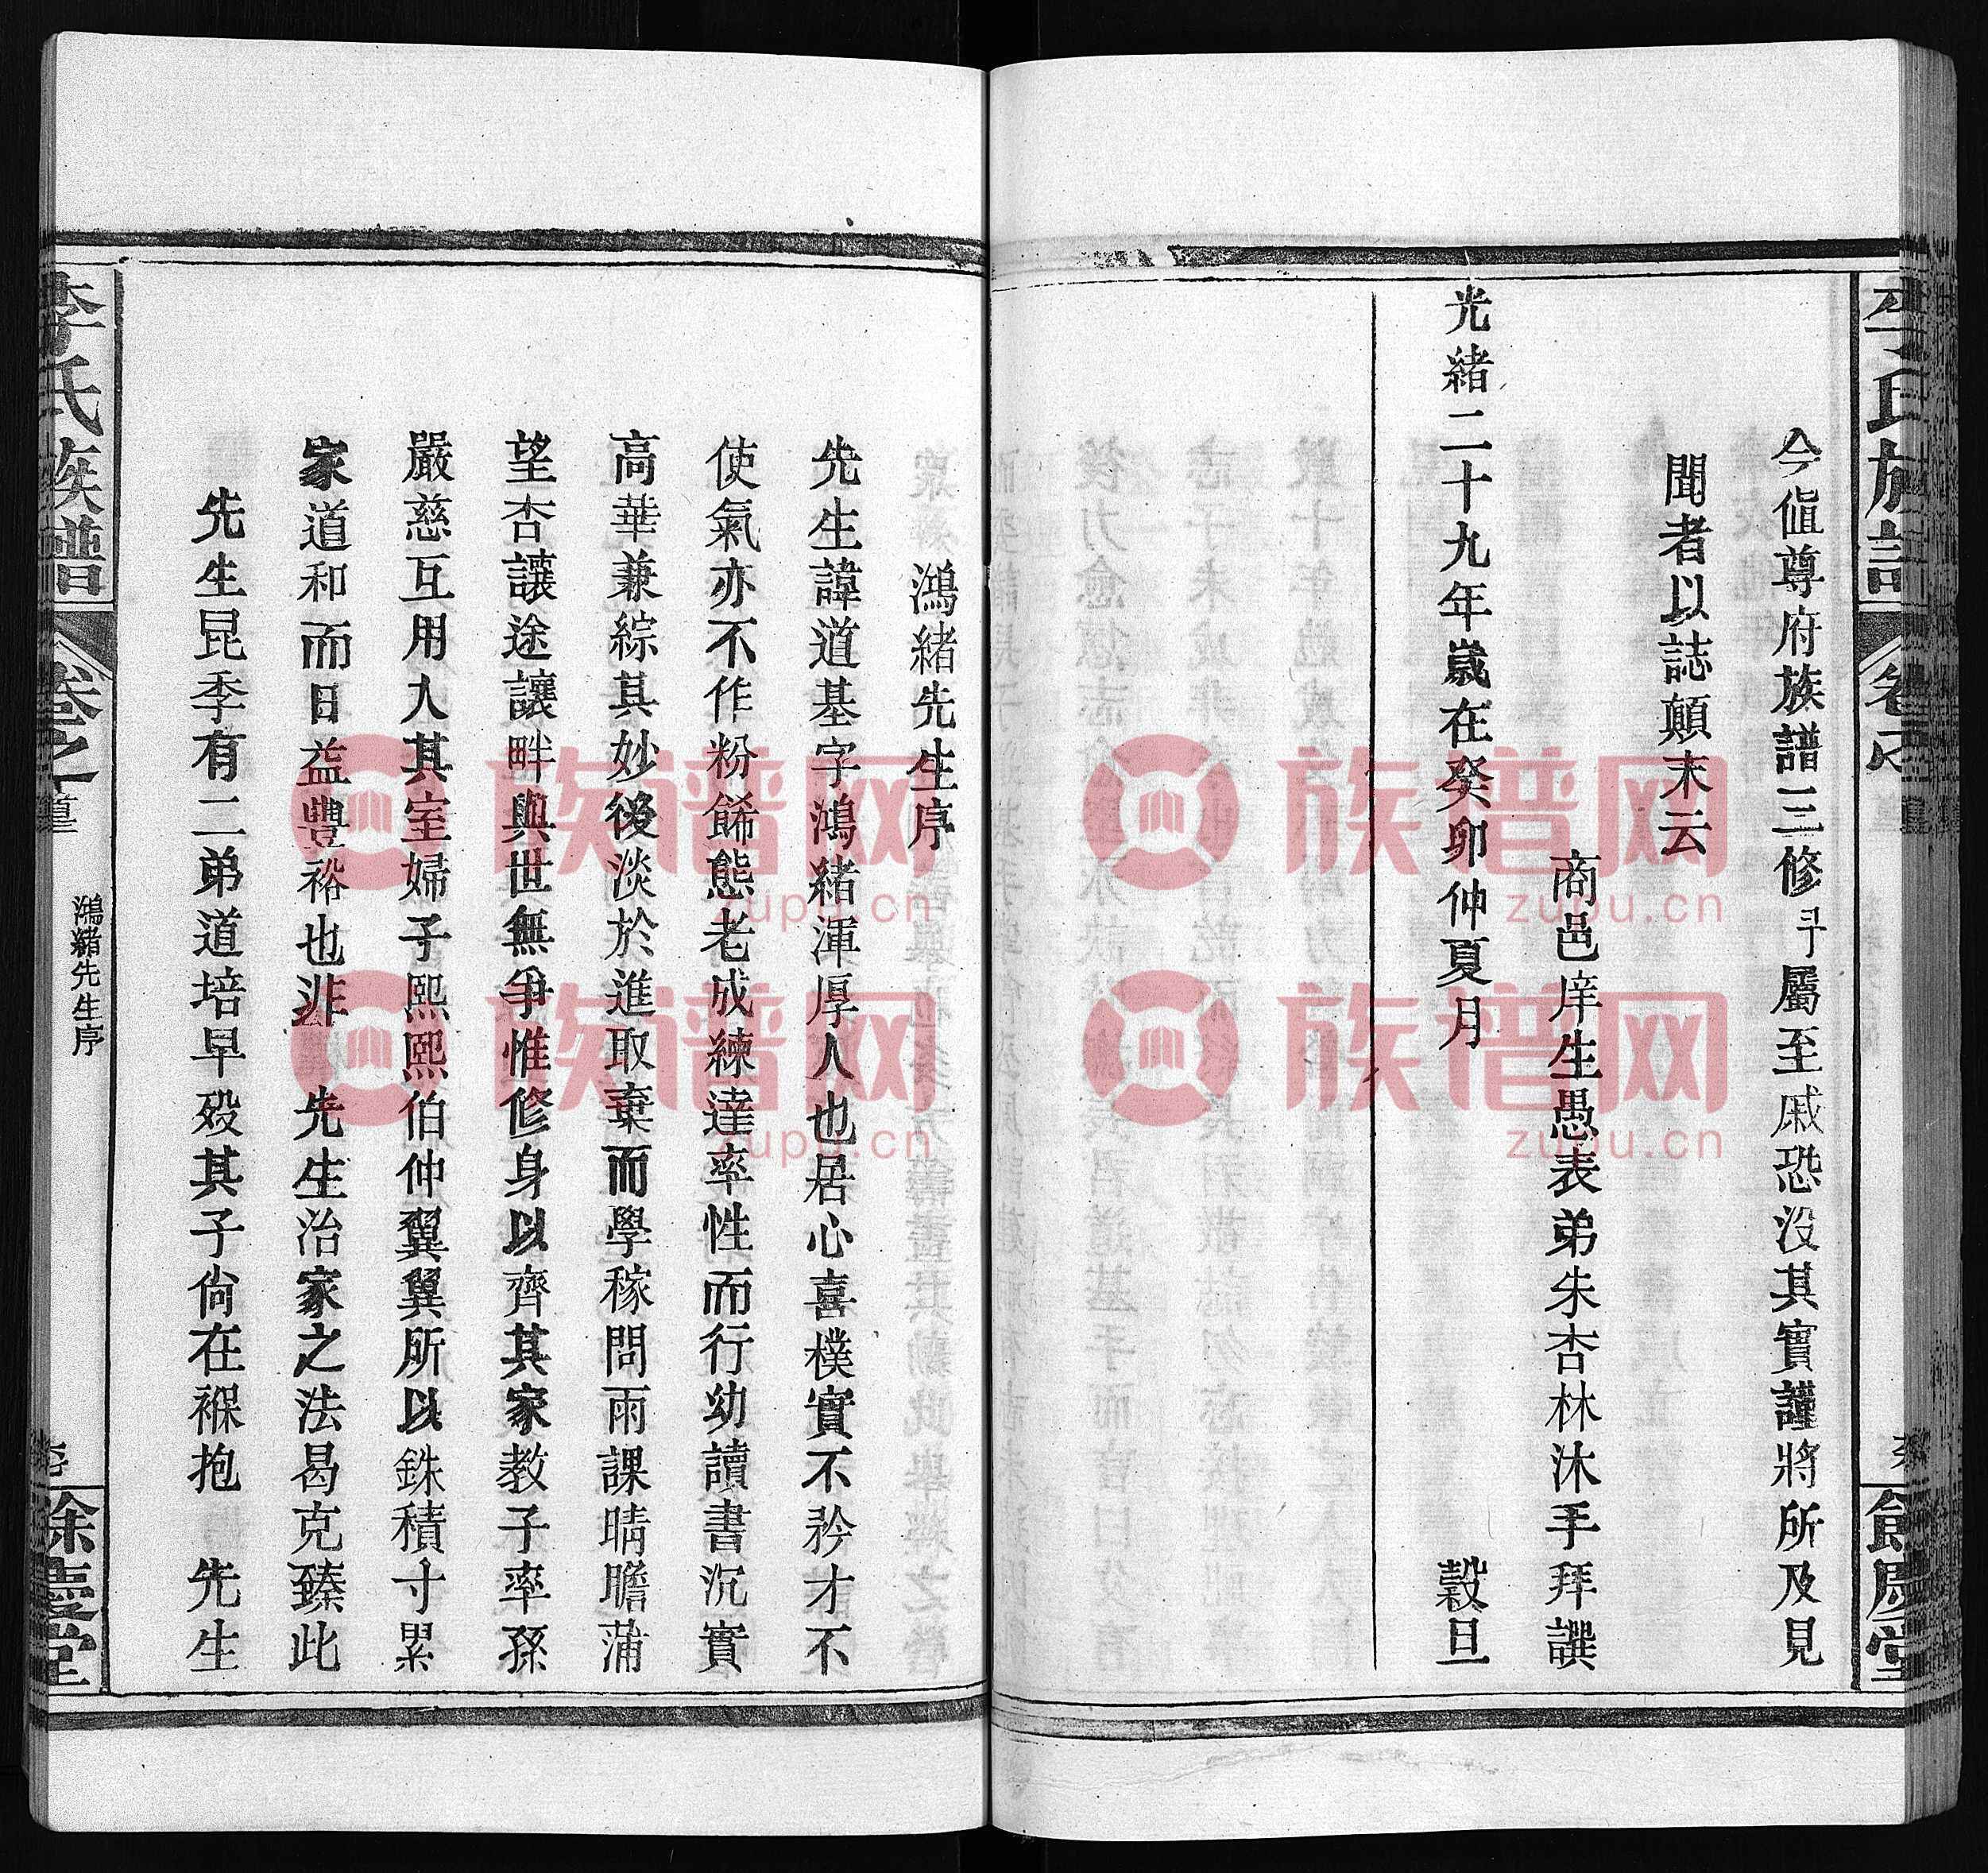 今值尊府族譜三修予屬至戚恐没其實謹將所及見
聞者以誌顛末云
商邑庠生愚表弟朱杏林沐手拜譔
光緒二十九年歲在癸卯仲夏月 穀旦
鴻緒先生序
先生諱道基字鴻緒渾厚人也居心喜樸實不矜才不
使氣亦不作粉餙態老成練達率性而行幼讀書沉實
高華兼綜其妙後淡於進取棄而學稼問雨課晴瞻蒲
望杏讓途讓畔與世無爭惟修身以齊其家教子率孫
嚴慈互用入其室婦子熙熙伯仲翼翼所以銖積寸累
家道和而日益豐裕也非 先生治家之法曷克臻此
先生昆季有二弟道培早殁其子尙在褓抱 先生
李氏族譜 卷之 鴻緒先生序 餘慶堂
李氏族譜 卷 餘慶堂
族谱网 zupu.cn
族谱网 zupu.cn
族谱网 zupu.cn
族谱网 zupu.cn